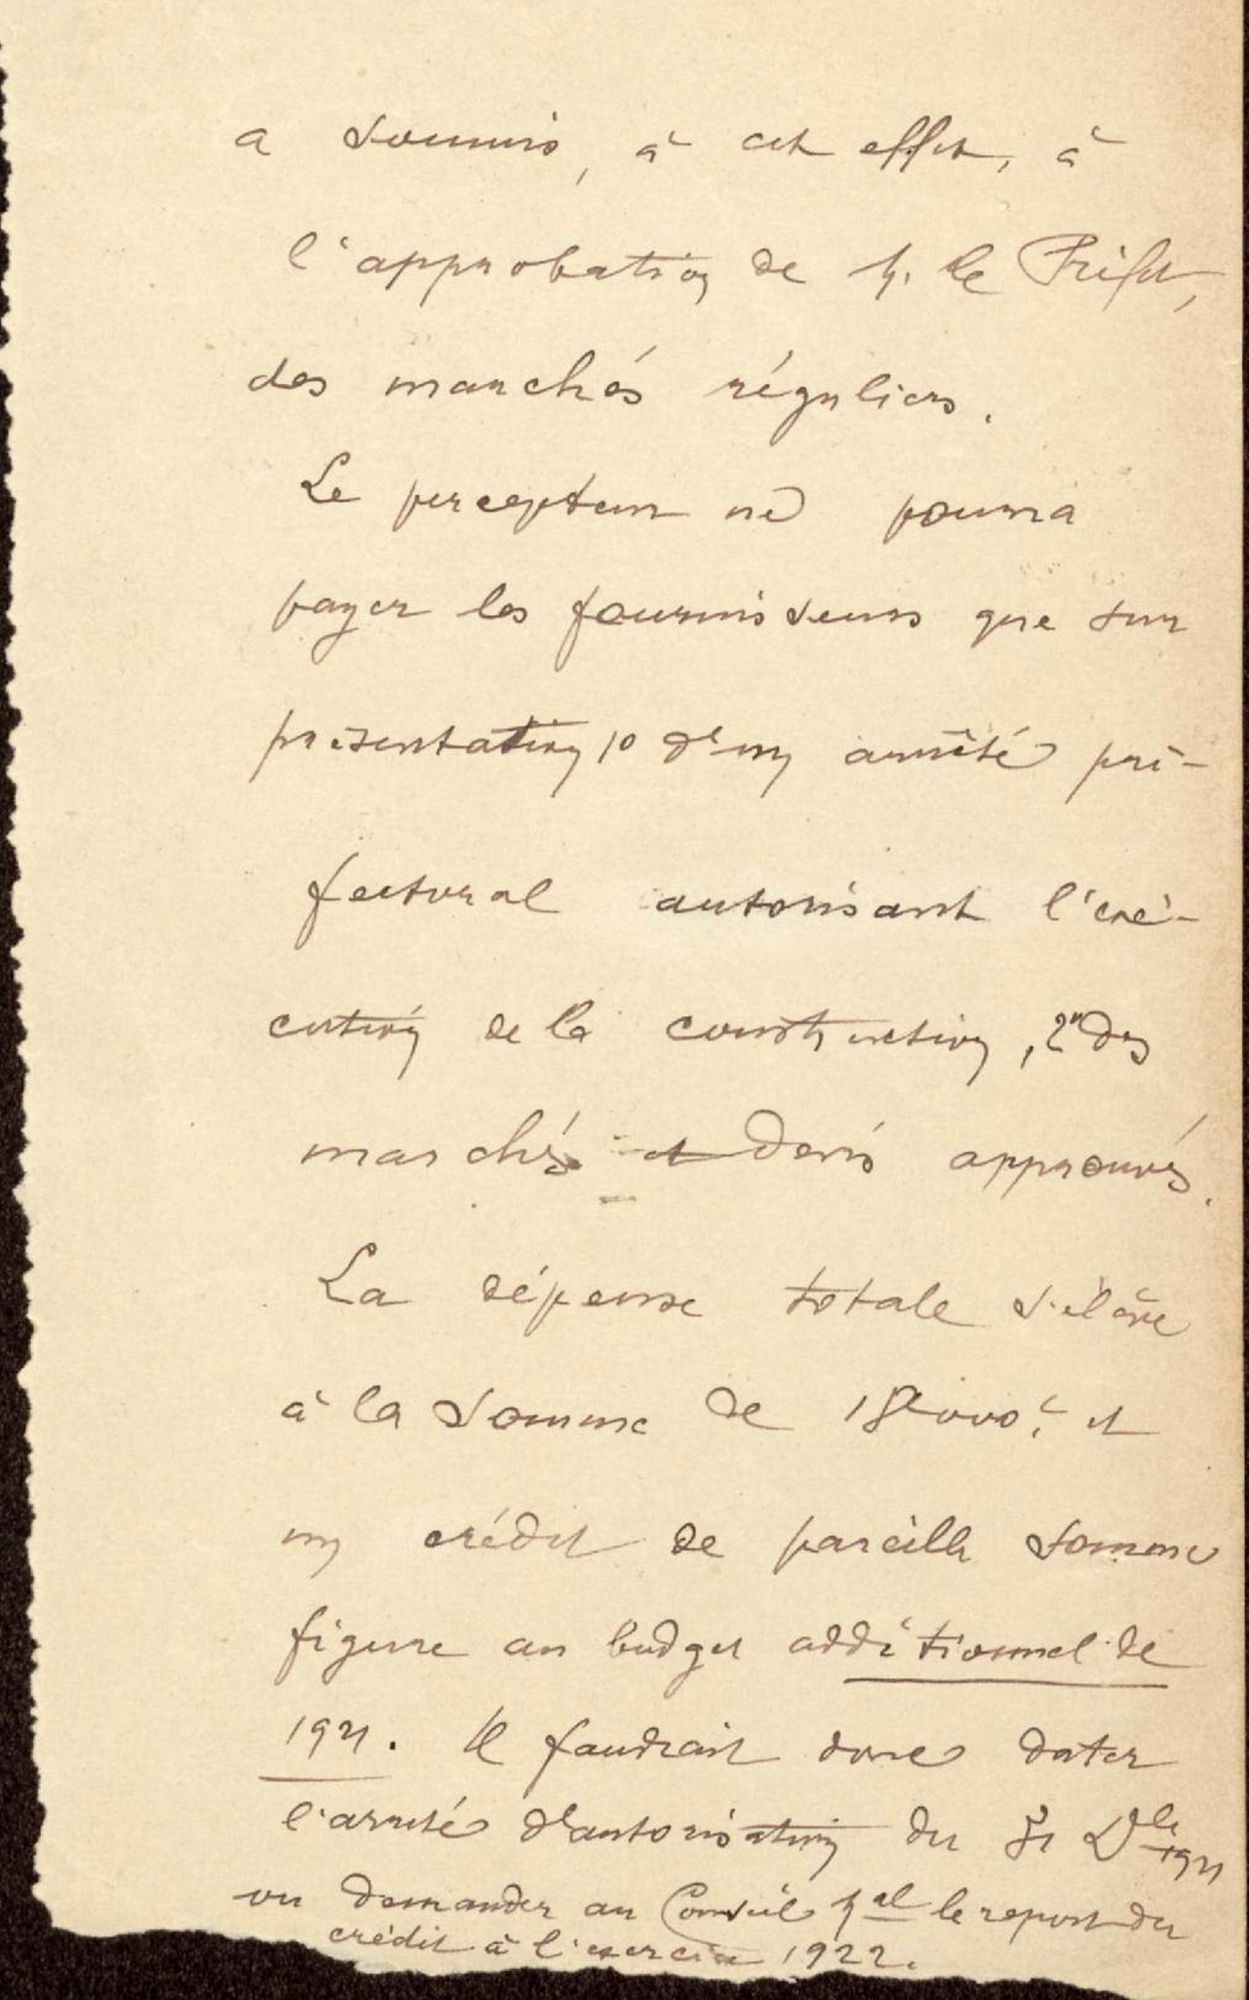 a soumis, à cet effet, à
l'approbation de M. le Préfet,
des marchés réguliers.
Le percepteur ne pourra
payer les fournisseurs que sur
présentation 1º d'un arrêté pré-
fectoral autorisant l'exé-
cution de la construction, 2º des
marchés et devis approuvés.
La dépense totale s'élève
à la somme de et
un crédit de pareille somme
figure au budget additionnel de
1921. Il faudrait donc dater
l'arrêté d'autorisation du 31 Xbre 1921
ou demander au Conseil Mal le report du
crédit à l'exercice 1922.